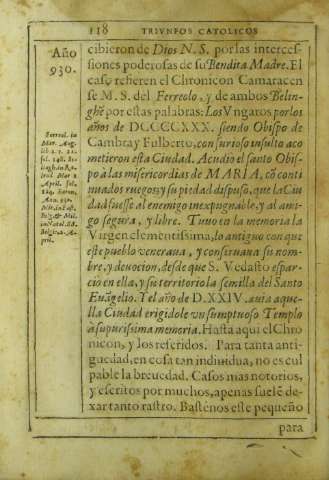 118 TRIVNFOS CATOLICOS
Año
930.
cibieron de Dios N. S. por las interces-
siones poderosas de su Bendita Madre. El
caso refieren el Chronicon Camaracen
se M. S. del Ferreolo, y de ambos Belin-
ghẽ por estas palabras: Los Vngaros por los
años de DCCCCXXX. siendo Obispo de
Cambray Fulberto, con furioso insulto aco
metieron esta Ciudad. Acudio el santo Obis-
po à las misericordias de MARIA, cõ conti
nuados ruegos, y su piedad dispuso, que la Ciu
dad fuesse al enemigo inexpugnable, y al ami-
go segura, y libre. Tuvo en la memoria la
Virgen clementissima, lo antiguo con que
este pueblo veneraua, y conseruaua su nom-
bre, y deuocion, desde que S. Vedasto espar-
cio en ella, y su territorio la semilla del Santo
Euãgelio. Y el año de D.XXIV. auia aque-
lla Ciudad erigidole vn sumptuoso Templo
a su purissima memoria. Hasta aqui el Chro
nicon, y los referidos. Para tanta anti-
guedad, en cosa tan indiuidua, no es cul
pable la breuedad. Casos mas notorios,
y escritos por muchos, apenas suelẽ de-
xar tanto rastro. Bastenos este pequeño
para
Ferreol. in
Mar. Aug.
lib. 2. c. 21.
fol. 148. Be
Mar. 2
April. fol.
Ann. 930.
in natal. SS.
Belg. 2. A-
pril.